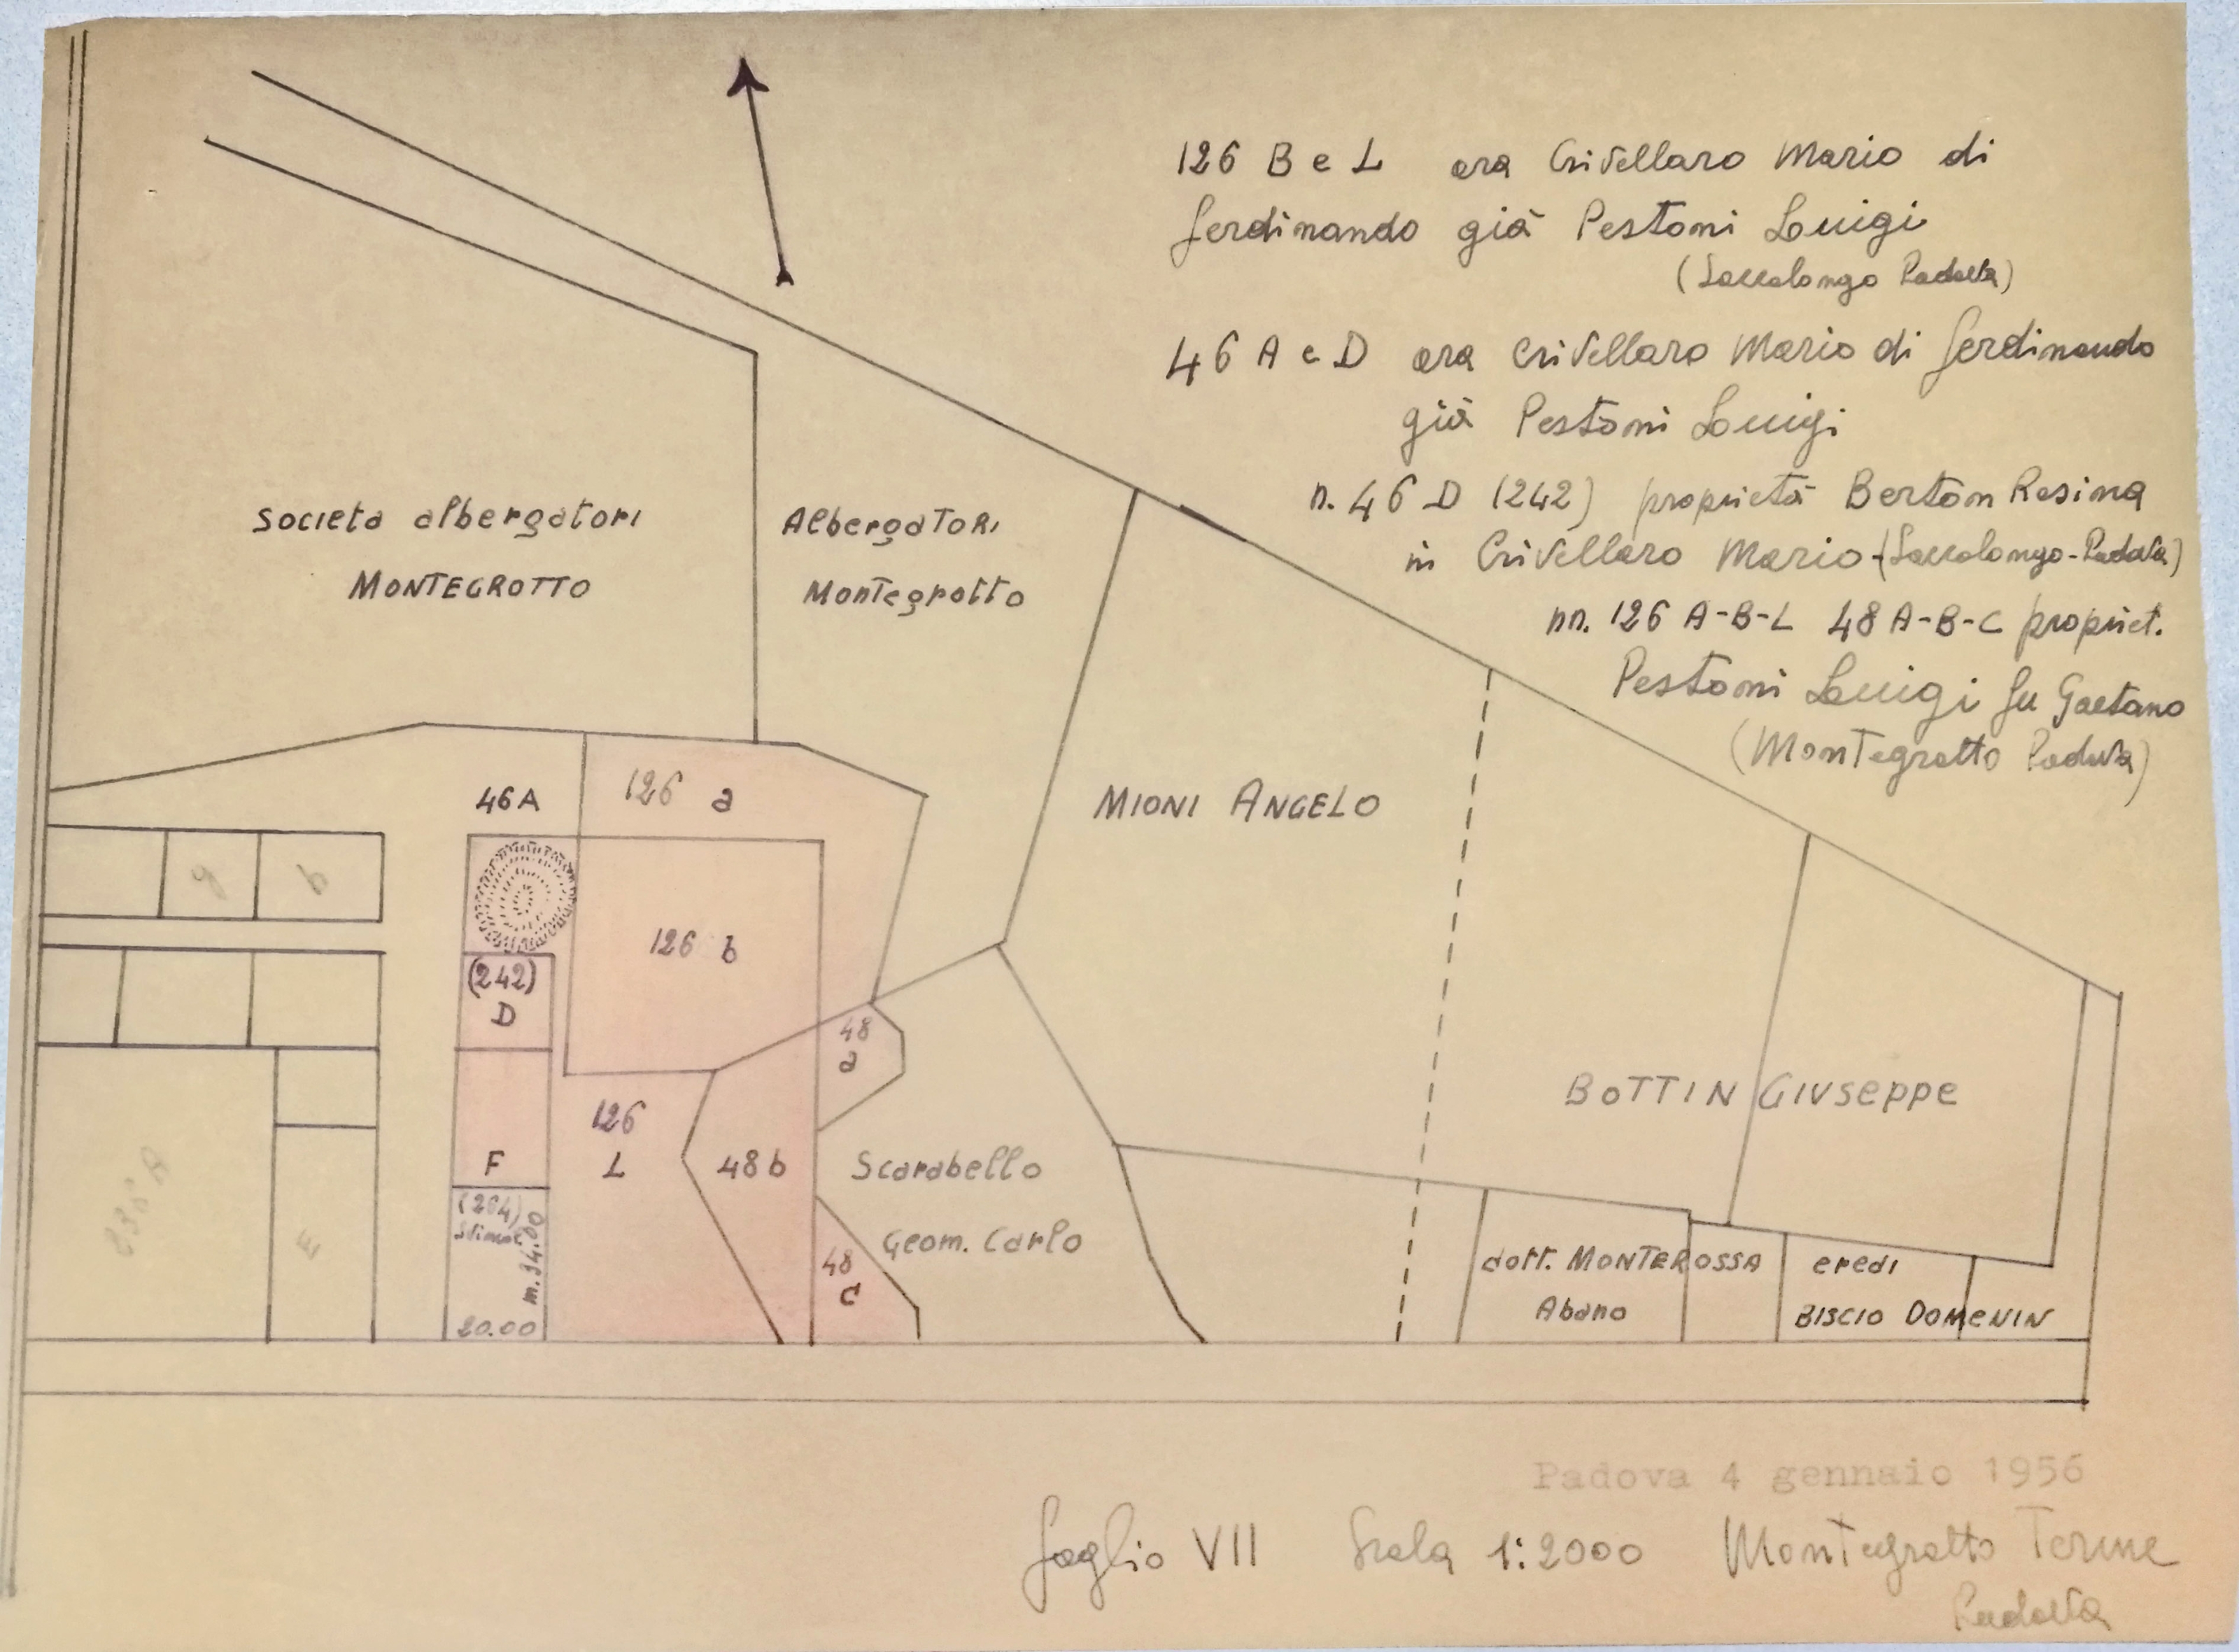 126 B e L ora Crivellaro Mario di
Ferdinando già Pestoni Luigi
(Saccolongo Padova)
46 A e D ora Crivellaro Mario di Ferdinando
già Pestoni Luigi
n. 46 D (242) proprietà Berton Resina
in Crivellaro Mario - (Saccolongo - Padova)
nn. 126 A-B-L 48 A-B-C propriet.
Pestoni Luigi fu Gaetano
(Montegrotto Padova)
Società albergatori
MONTEGROTTO
Albergatori
Montegrotto
46A
126 a
MIONI ANGELO
g
b
126 b
(242)
D
48
a
126
L
BOTTIN GIUSEPPE
F
48 b
Scarabello
Geom. Carlo
(264)
m. 34.00
20.00
E
48
c
dott. MONTEROSSA
Abano
eredi
BISCIO DOMENIN
Padova 4 gennaio 1956
foglio VII Scala 1:2000 Montegrotto Terme
Padova